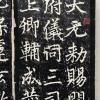 大元勅賜開
府儀同三司
上卿輔成贊